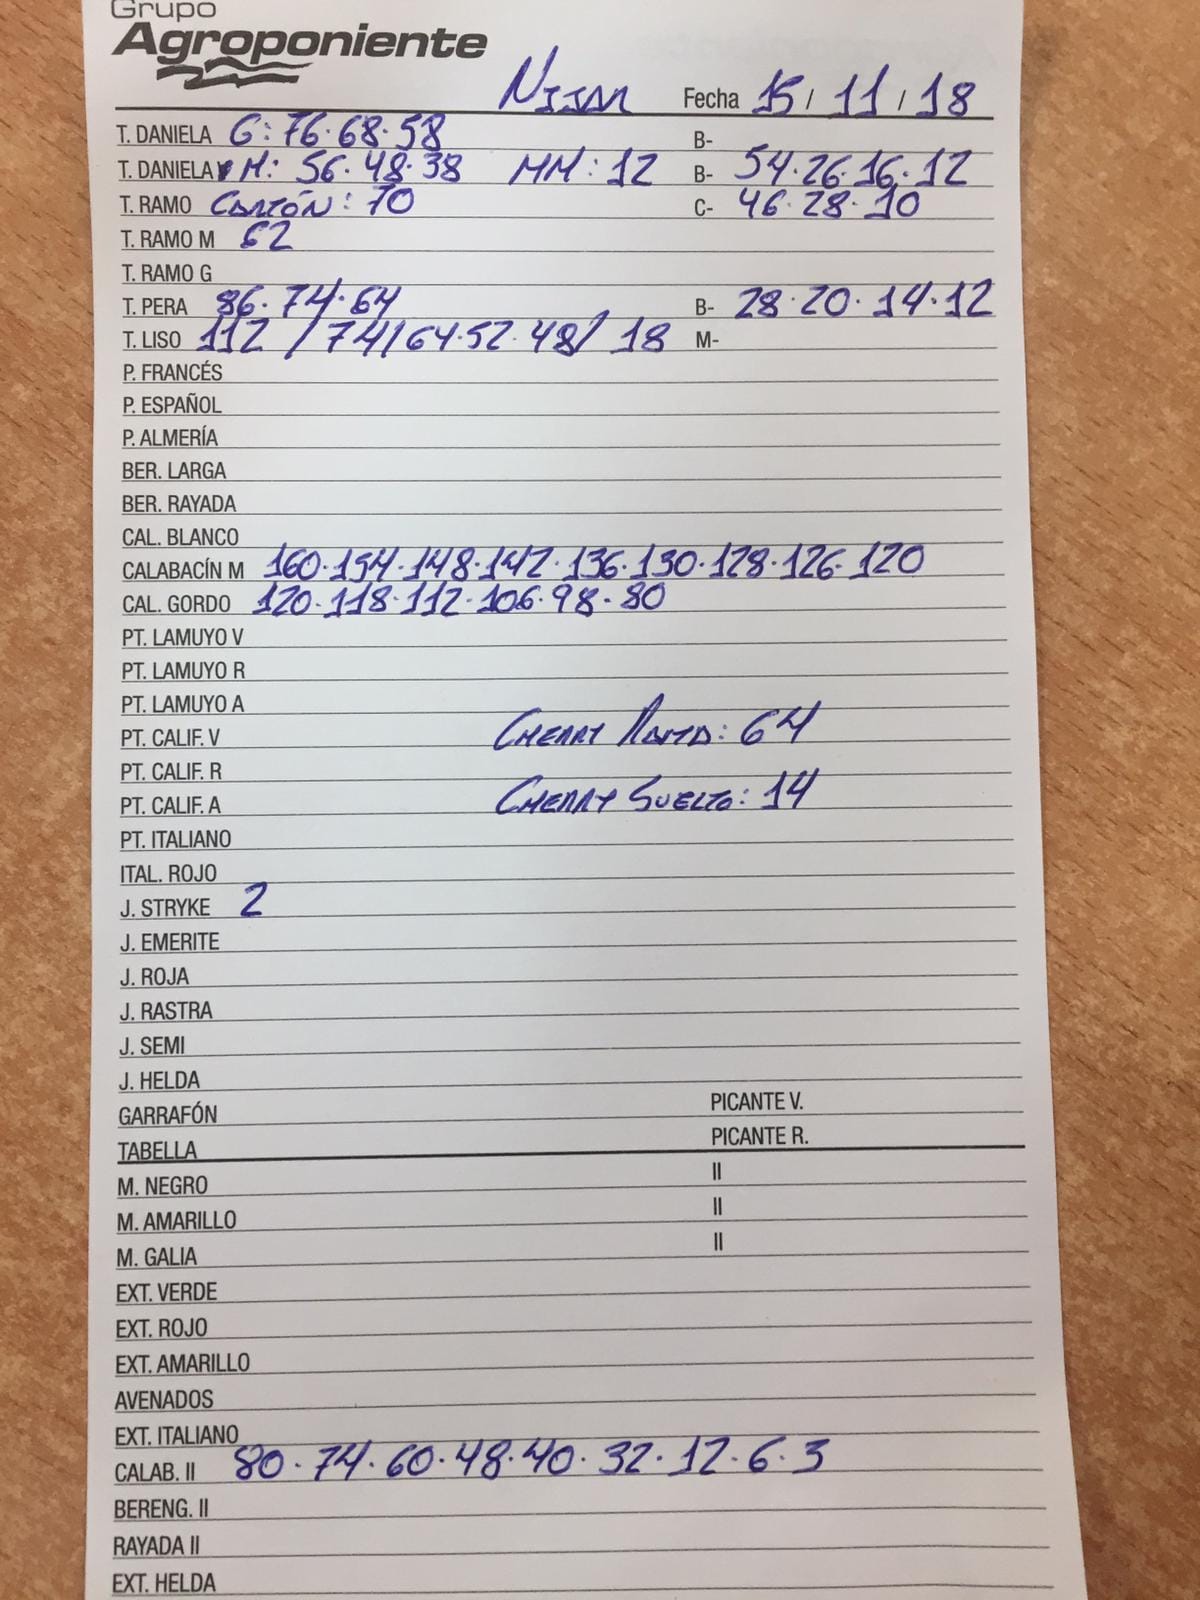 Grupo
Agroponiente
NIJAR Fecha 15 / 11 / 18
T. DANIELA G: 76·68·58 B-
T. DANIELA M: 56·48·38 MM: 12 B- 54·26·16·12
T. RAMO CARTÓN: 70 C- 46·28·10
T. RAMO M 62
T. RAMO G
T. PERA 86·74·64 B- 28·20·14·12
T. LISO 112 / 74/64·52·48/ 18 M-
P. FRANCÉS
P. ESPAÑOL
P. ALMERÍA
BER. LARGA
BER. RAYADA
CAL. BLANCO
CALABACÍN M 160·154·148·142·136·130·128·126·120
CAL. GORDO 120·118·112·106·98·80
PT. LAMUYO V
PT. LAMUYO R
PT. LAMUYO A
PT. CALIF. V CHERRY RAMA: 64
PT. CALIF. R
PT. CALIF. A CHERRY SUELTO: 14
PT. ITALIANO
ITAL. ROJO
J. STRYKE 2
J. EMERITE
J. ROJA
J. RASTRA
J. SEMI
J. HELDA
GARRAFÓN PICANTE V.
TABELLA PICANTE R.
M. NEGRO II
M. AMARILLO II
M. GALIA II
EXT. VERDE
EXT. ROJO
EXT. AMARILLO
AVENADOS
EXT. ITALIANO
CALAB. II 80·74·60·48·40·32·12·6·3
BERENG. II
RAYADA II
EXT. HELDA